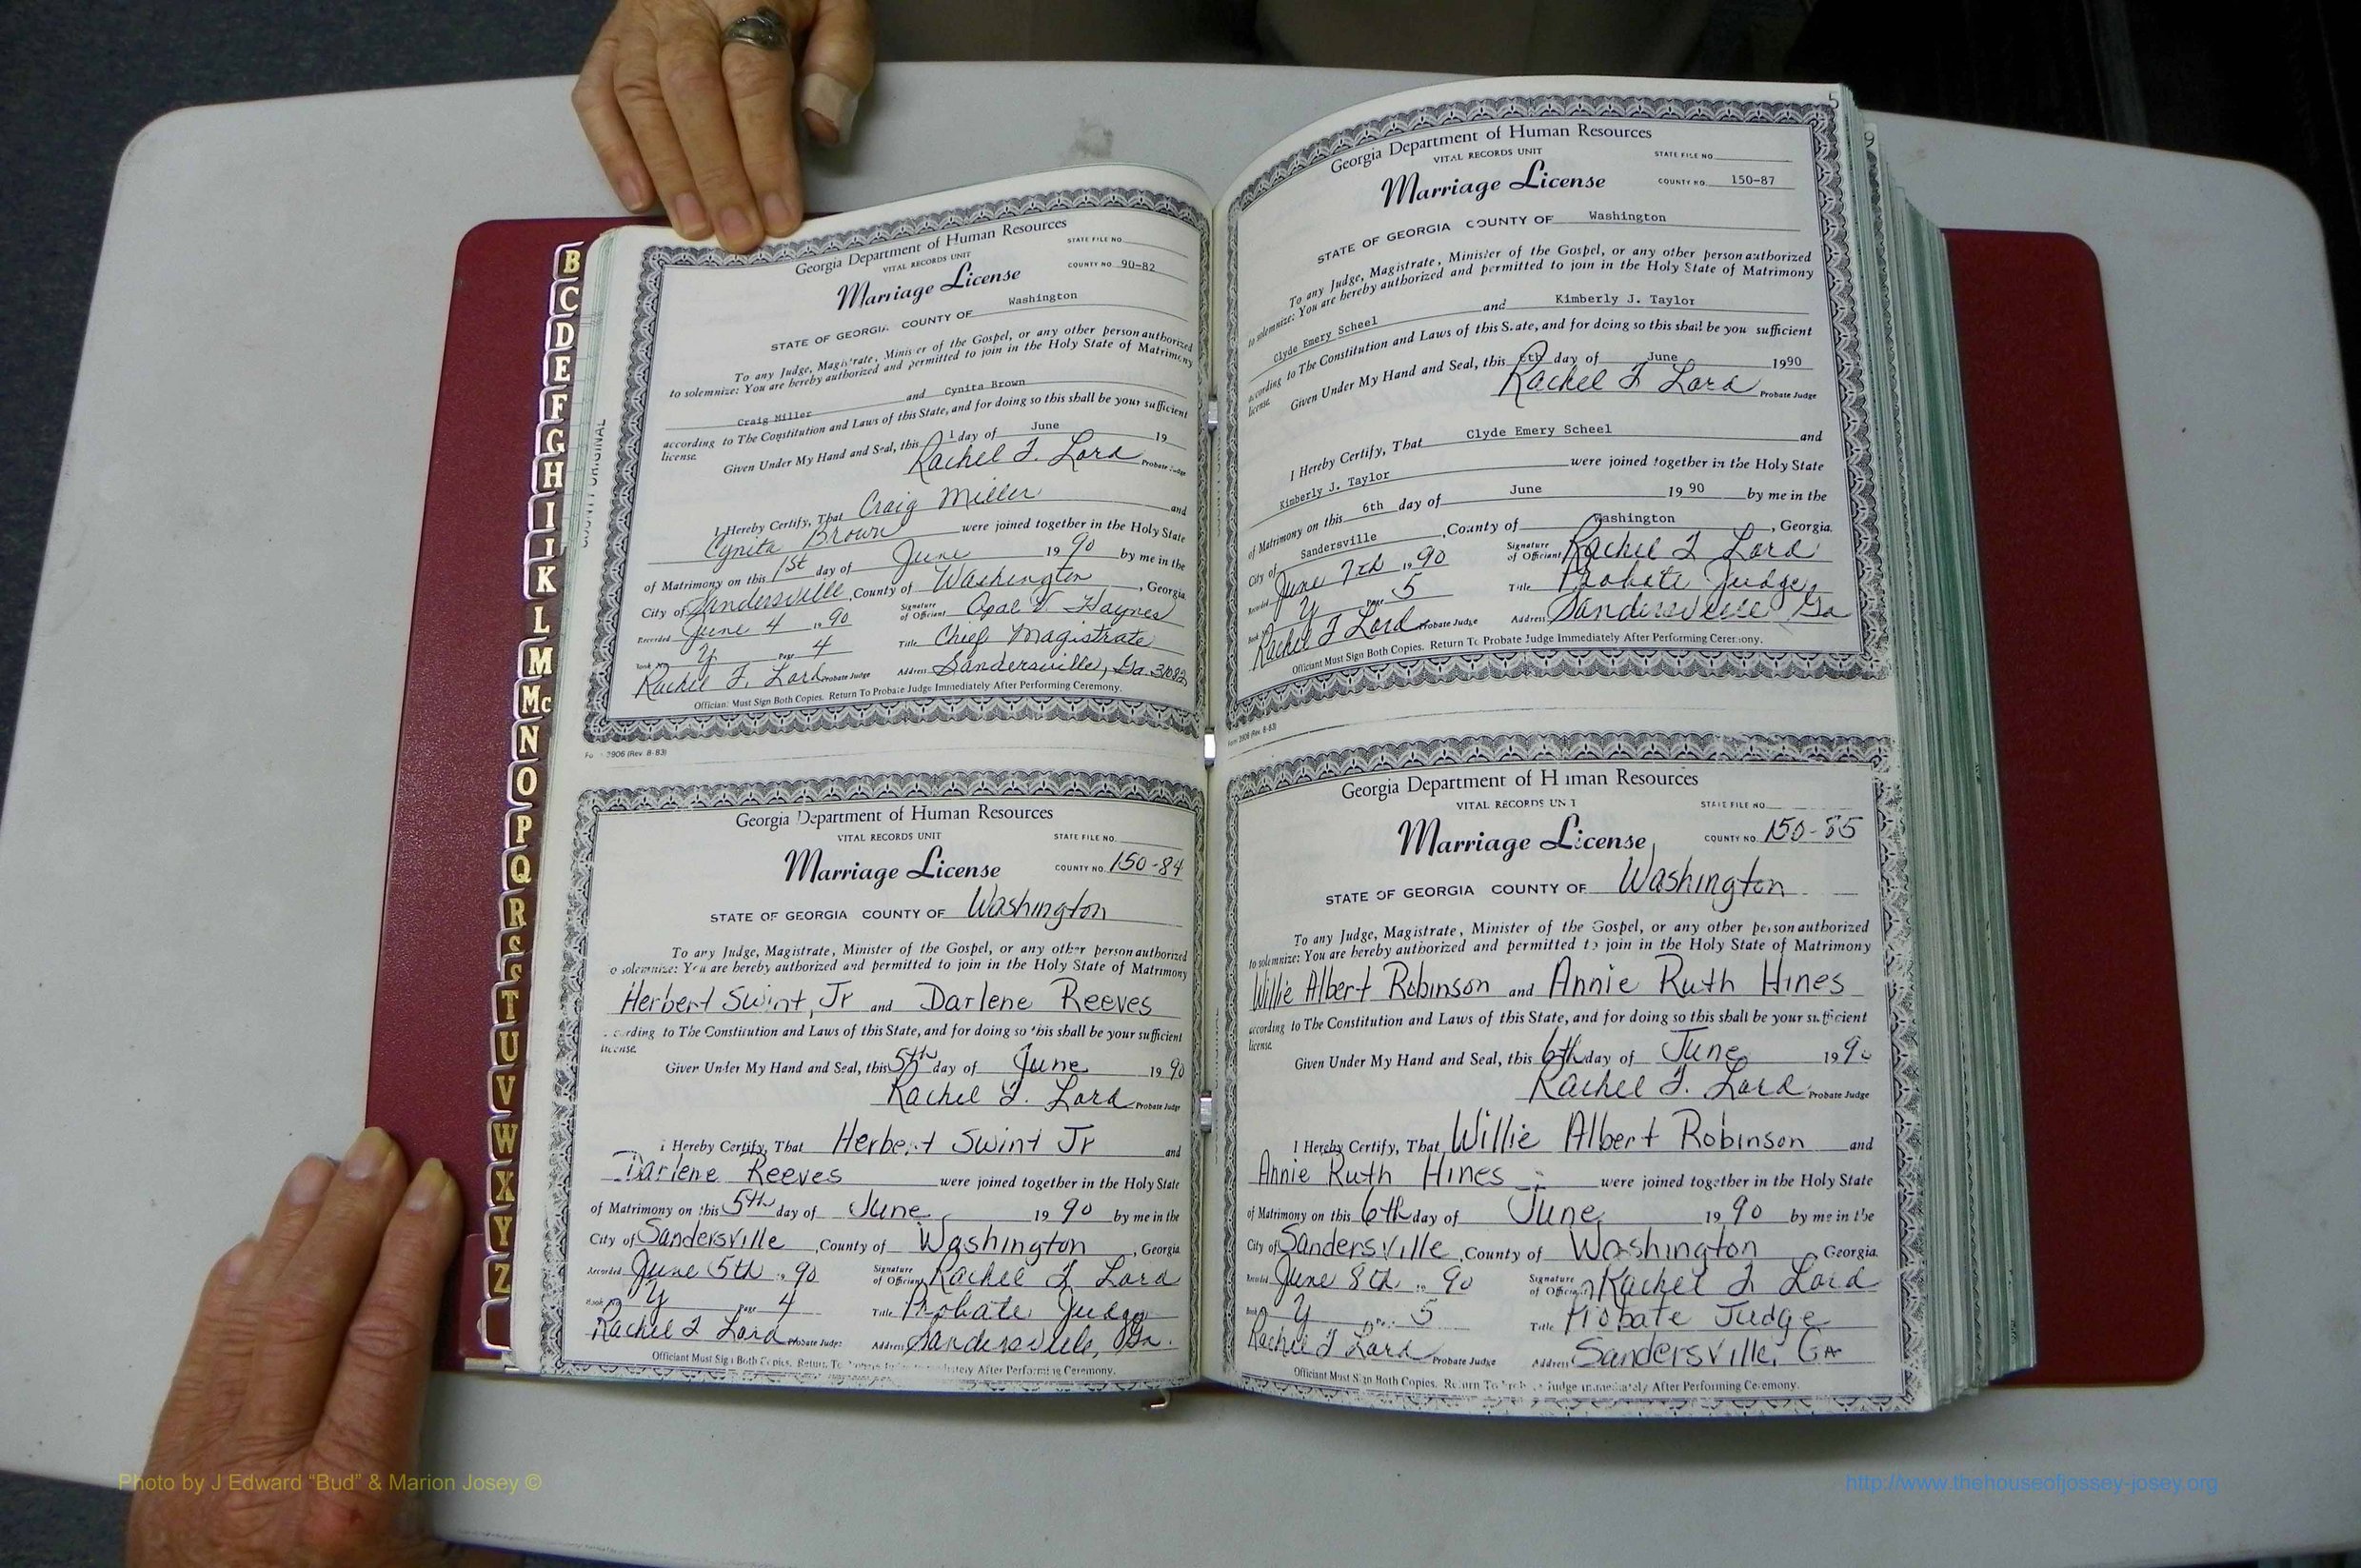 B
C
D
E
F
G
H
I
J
K
L
M
Mc
N
O
P
Q
R
S
T
U
V
W
X
Y
Z
Georgia Department of Human Resources
VITAL RECORDS UNIT
STATE FILE NO.
Marriage License
COUNTY NO. 90-82
STATE OF GEORGIA COUNTY OF Washington
To any Judge, Magistrate, Minister of the Gospel, or any other person authorized
to solemnize: You are hereby authorized and permitted to join in the Holy State of Matrimony
Craig Miller and Cynita Brown
according to The Constitution and Laws of this State, and for doing so this shall be your sufficient
license.
Given Under My Hand and Seal, this 1 day of June 19
Rachel F. Lord Probate Judge
I Hereby Certify, That Craig Miller and
Cynita Brown were joined together in the Holy State
of Matrimony on this 1st day of June 19 90 by me in the
City of Sandersville, County of Washington, Georgia
Recorded June 4 19 90 Signature of Officiant Opal V Haynes
Book No. Y Page 4 Title Chief Magistrate
Rachel F. Lord Probate Judge Address Sandersville, Ga. 31082
Officiant Must Sign Both Copies. Return To Probate Judge Immediately After Performing Ceremony.
3906 (Rev. 8-83)
Georgia Department of Human Resources
VITAL RECORDS UNIT
STATE FILE NO.
Marriage License
COUNTY NO. 150-84
STATE OF GEORGIA COUNTY OF Washington
To any Judge, Magistrate, Minister of the Gospel, or any other person authorized
o solemnize: You are hereby authorized and permitted to join in the Holy State of Matrimony
Herbert Swint, Jr and Darlene Reeves
according to The Constitution and Laws of this State, and for doing so this shall be your sufficient
license.
Given Under My Hand and Seal, this 5th day of June 19 90
Rachel F. Lord Probate Judge
I Hereby Certify, That Herbert Swint Jr and
Darlene Reeves were joined together in the Holy State
of Matrimony on this 5th day of June 19 90 by me in the
City of Sandersville, County of Washington, Georgia
Recorded June 5th 19 90 Signature of Officiant Rachel F Lord
Book No. Y Page 4 Title Probate Judge
Rachel F Lord Probate Judge Address Sandersville, Ga.
Officiant Must Sign Both Copies. Return To Probate Judge Immediately After Performing Ceremony.
5
Georgia Department of Human Resources
VITAL RECORDS UNIT
STATE FILE NO.
Marriage License
COUNTY NO. 150-87
STATE OF GEORGIA COUNTY OF Washington
To any Judge, Magistrate, Minister of the Gospel, or any other person authorized
to solemnize: You are hereby authorized and permitted to join in the Holy State of Matrimony
Clyde Emery Scheel and Kimberly J. Taylor
according to The Constitution and Laws of this State, and for doing so this shall be you sufficient
license.
Given Under My Hand and Seal, this 6th day of June 1990
Rachel F Lord Probate Judge
I Hereby Certify, That Clyde Emery Scheel and
Kimberly J. Taylor were joined together in the Holy State
of Matrimony on this 6th day of June 19 90 by me in the
City of Sandersville, County of Washington, Georgia.
Recorded June 7th 19 90 Signature of Officiant Rachel F Lord
Book No. Y Page 5 Title Probate Judge
Rachel F Lord Probate Judge Address Sandersville Ga
Officiant Must Sign Both Copies. Return To Probate Judge Immediately After Performing Ceremony.
Form 3906 (Rev. 8-83)
Georgia Department of Human Resources
VITAL RECORDS UNIT
STATE FILE NO.
Marriage License
COUNTY NO. 150-85
STATE OF GEORGIA COUNTY OF Washington
To any Judge, Magistrate, Minister of the Gospel, or any other person authorized
to solemnize: You are hereby authorized and permitted to join in the Holy State of Matrimony
Willie Albert Robinson and Annie Ruth Hines
according to The Constitution and Laws of this State, and for doing so this shall be your sufficient
license.
Given Under My Hand and Seal, this 6th day of June 19 90
Rachel F. Lord Probate Judge
I Hereby Certify, That Willie Albert Robinson and
Annie Ruth Hines were joined together in the Holy State
of Matrimony on this 6th day of June 19 90 by me in the
City of Sandersville, County of Washington, Georgia.
Recorded June 8th 19 90 Signature of Officiant Rachel F Lord
Book No. Y Page 5 Title Probate Judge
Rachel F Lord Probate Judge Address Sandersville, GA
Officiant Must Sign Both Copies. Return To Probate Judge Immediately After Performing Ceremony.
Photo by J Edward “Bud” & Marion Josey ©
http://www.thehouseofjossey-josey.org